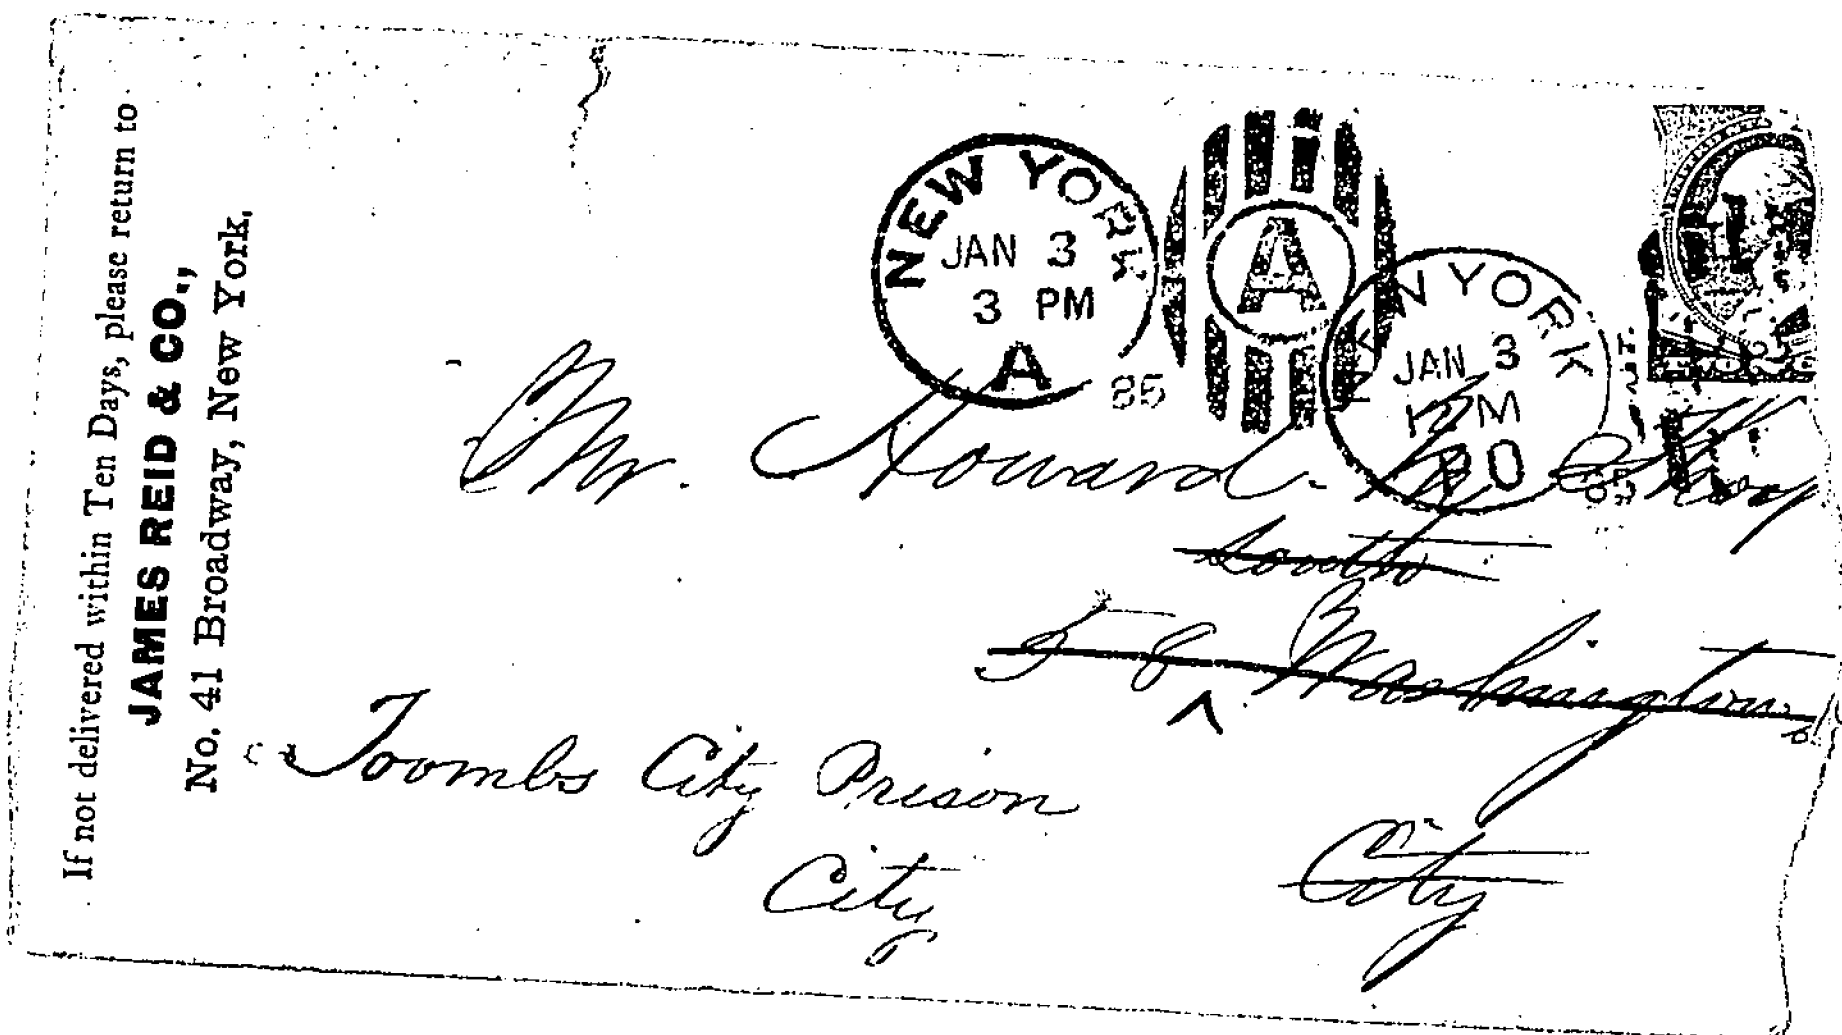 If not delivered within Ten Days, please return to
JAMES REID & CO.,
No. 41 Broadway, New York.
NEW YORK
JAN 3
3 PM
A
85
A
NEW YORK
JAN 3
12 M
Mr. Howard
South
Washington
Toombs City Prison
City
City